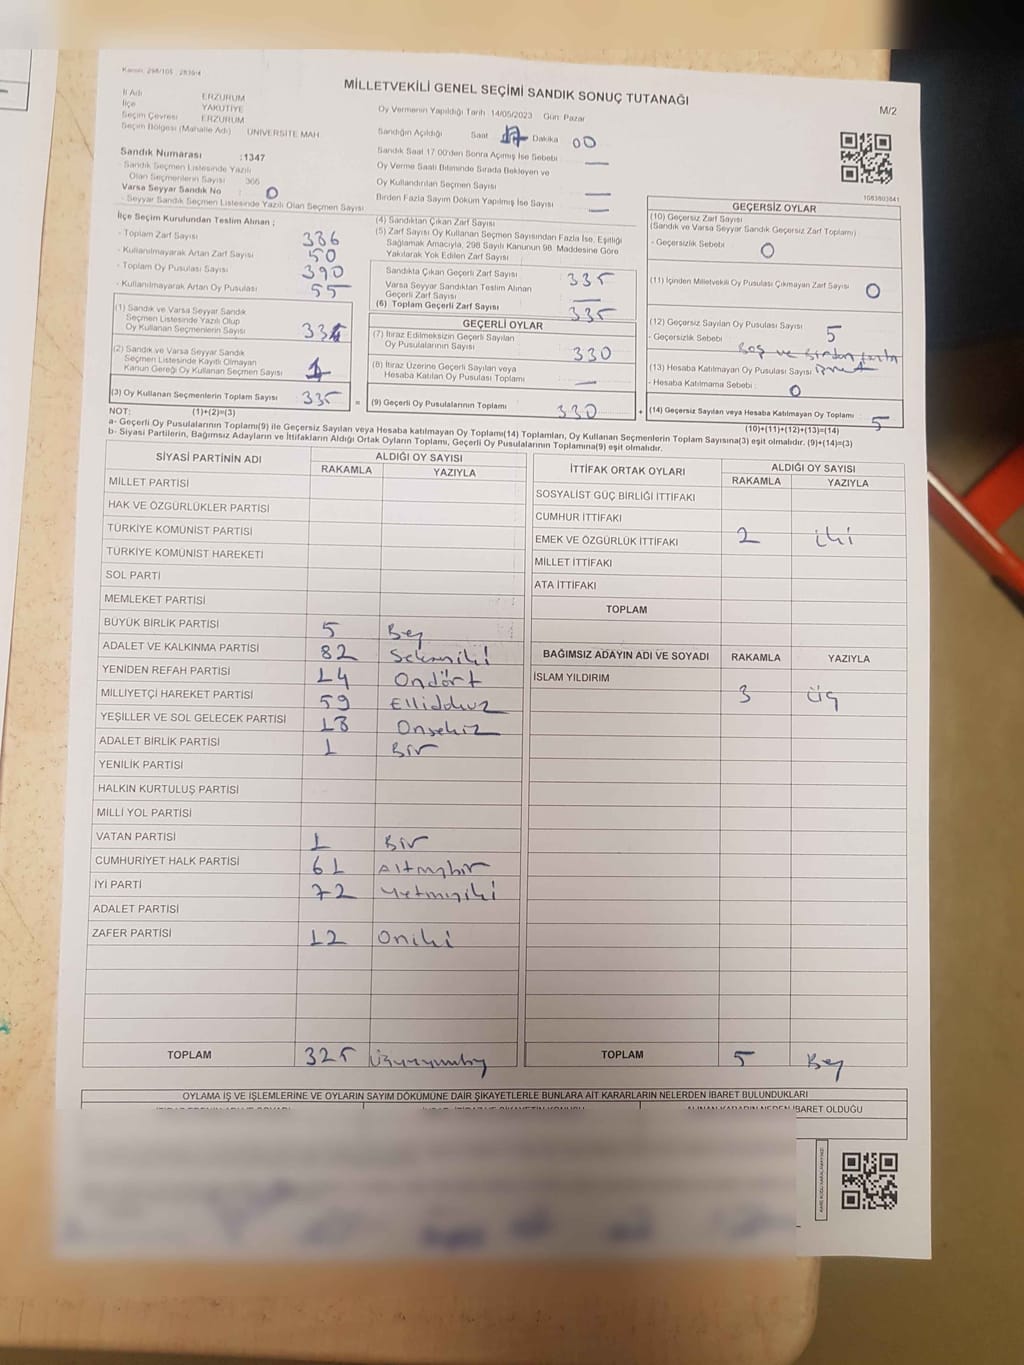 Kanun: 298/105 : 2839/4
MİLLETVEKİLİ GENEL SEÇİMİ SANDIK SONUÇ TUTANAĞI
M/2
İl Adı ERZURUM
İlçe YAKUTİYE
Seçim Çevresi ERZURUM
Seçim Bölgesi (Mahalle Adı) UNIVERSITE MAH
Sandık Numarası :1347
- Sandık Seçmen Listesinde Yazılı
Olan Seçmenlerin Sayısı 366
Varsa Seyyar Sandık No : 0
- Seyyar Sandık Seçmen Listesinde Yazılı Olan Seçmen Sayısı
Oy Vermenin Yapıldığı Tarih 14/05/2023 Gün: Pazar
Sandığın Açıldığı Saat 17 Dakika 00
Sandık Saat 17:00'den Sonra Açımış İse Sebebi —
Oy Verme Saati Bitiminde Sırada Bekleyen ve
Oy Kullandırılan Seçmen Sayısı —
Birden Fazla Sayım Döküm Yapılmış İse Sayısı —
1083803841
İlçe Seçim Kurulundan Teslim Alınan ;
- Toplam Zarf Sayısı 386
- Kullanılmayarak Artan Zarf Sayısı 50
- Toplam Oy Pusulası Sayısı 390
- Kullanılmayarak Artan Oy Pusulası 55
(1) Sandık ve Varsa Seyyar Sandık
Seçmen Listesinde Yazılı Olup
Oy Kullanan Seçmenlerin Sayısı 334
(2) Sandık ve Varsa Seyyar Sandık
Seçmen Listesinde Kayıtlı Olmayan
Kanun Gereği Oy Kullanan Seçmen Sayısı 1
(3) Oy Kullanan Seçmenlerin Toplam Sayısı 335 =
(4) Sandıktan Çıkan Zarf Sayısı
(5) Zarf Sayısı Oy Kullanan Seçmen Sayısından Fazla İse, Eşitliği
Sağlamak Amacıyla, 298 Sayılı Kanunun 98. Maddesine Göre
Yakılarak Yok Edilen Zarf Sayısı
Sandıkta Çıkan Geçerli Zarf Sayısı 335
Varsa Seyyar Sandıktan Teslim Alınan
Geçerli Zarf Sayısı —
(6) Toplam Geçerli Zarf Sayısı 335
GEÇERLİ OYLAR
(7) İtiraz Edilmeksizin Geçerli Sayılan
Oy Pusulalarının Sayısı 330
(8) İtiraz Üzerine Geçerli Sayılan veya
Hesaba Katılan Oy Pusulası Toplamı —
(9) Geçerli Oy Pusulalarının Toplamı 330 +
GEÇERSİZ OYLAR
(10) Geçersiz Zarf Sayısı
(Sandık ve Varsa Seyyar Sandık Geçersiz Zarf Toplamı)
- Geçersizlik Sebebi 0
(11) İçinden Milletvekili Oy Pusulası Çıkmayan Zarf Sayısı 0
(12) Geçersiz Sayılan Oy Pusulası Sayısı 5
- Geçersizlik Sebebi Boş ve Birden fazla
(13) Hesaba Katılmayan Oy Pusulası Sayısı
- Hesaba Katılmama Sebebi : 0
(14) Geçersiz Sayılan veya Hesaba Katılmayan Oy Toplamı 5
NOT: (1)+(2)=(3)
(10)+(11)+(12)+(13)=(14)
a- Geçerli Oy Pusulalarının Toplamı(9) ile Geçersiz Sayılan veya Hesaba katılmayan Oy Toplamı(14) Toplamları, Oy Kullanan Seçmenlerin Toplam Sayısına(3) eşit olmalıdır. (9)+(14)=(3)
b- Siyasi Partilerin, Bağımsız Adayların ve İttifakların Aldığı Ortak Oyların Toplamı, Geçerli Oy Pusulalarının Toplamına(9) eşit olmalıdır.
SİYASİ PARTİNİN ADI ALDIĞI OY SAYISI
RAKAMLA YAZIYLA
MİLLET PARTİSİ
HAK VE ÖZGÜRLÜKLER PARTİSİ
TÜRKİYE KOMÜNİST PARTİSİ
TÜRKİYE KOMÜNİST HAREKETİ
SOL PARTİ
MEMLEKET PARTİSİ
BÜYÜK BİRLİK PARTİSİ 5 Beş
ADALET VE KALKINMA PARTİSİ 82 Seksenİki
YENİDEN REFAH PARTİSİ 14 Ondört
MİLLİYETÇİ HAREKET PARTİSİ 59 Ellidokuz
YEŞİLLER VE SOL GELECEK PARTİSİ 18 Onsekiz
ADALET BİRLİK PARTİSİ 1 Bir
YENİLİK PARTİSİ
HALKIN KURTULUŞ PARTİSİ
MİLLİ YOL PARTİSİ
VATAN PARTİSİ 1 Bir
CUMHURİYET HALK PARTİSİ 61 Altmışbir
İYİ PARTİ 72 Yetmişiki
ADALET PARTİSİ
ZAFER PARTİSİ 12 Oniki
TOPLAM 325 Üçyüzyirmibeş
İTTİFAK ORTAK OYLARI ALDIĞI OY SAYISI
RAKAMLA YAZIYLA
SOSYALİST GÜÇ BİRLİĞİ İTTİFAKI
CUMHUR İTTİFAKI
EMEK VE ÖZGÜRLÜK İTTİFAKI 2 iki
MİLLET İTTİFAKI
ATA İTTİFAKI
TOPLAM
BAĞIMSIZ ADAYIN ADI VE SOYADI RAKAMLA YAZIYLA
İSLAM YILDIRIM 3 üç
TOPLAM 5 Beş
OYLAMA İŞ VE İŞLEMLERİNE VE OYLARIN SAYIM DÖKÜMÜNE DAİR ŞİKAYETLERLE BUNLARA AİT KARARLARIN NELERDEN İBARET BULUNDUKLARI
ALINAN KARARIN NEDEN İBARET OLDUĞU